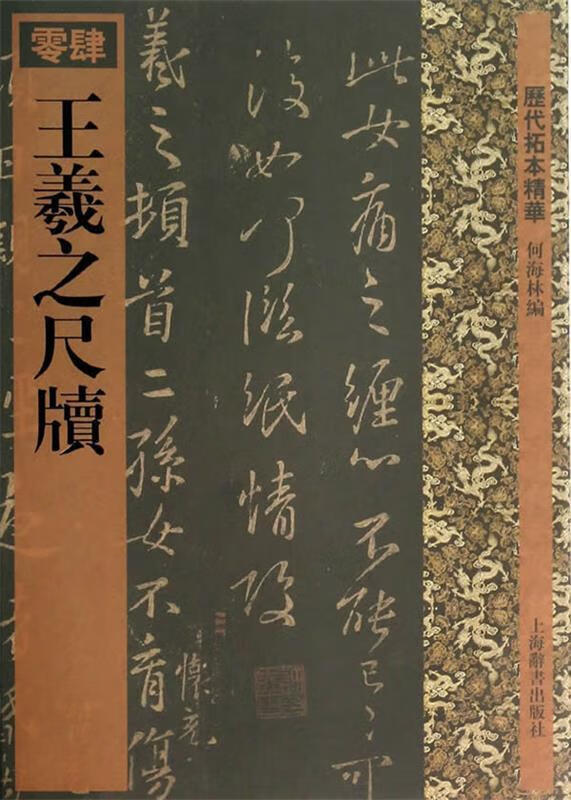 歷代拓本精華
何海林編
上海辭書出版社
此女痛之纏心不能已已可
復如何臨紙情酸
羲之頓首二孫女不育傷
零肆
王羲之尺牘